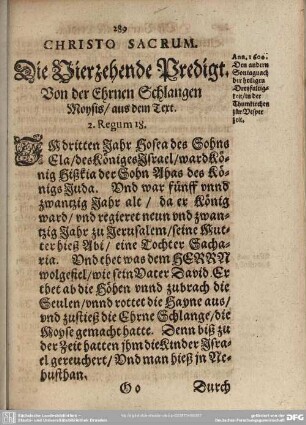 289
CHRISTO SACRUM.
Die Vierzehende Predigt,
Von der Ehrnen Schlangen
Moysis/ aus dem Text.
2. Regum 18.
Ann. 1600.
Den andern
Sontag nach
der heiligen
Dreyfaltig-
keit/ in der
Thumkirchen
zur Vesper
zeit.
IM dritten Jahr Hosea des Sohns
Ela/ des Königes Israel/ ward Kö-
nig Hißkia der Sohn Ahas des Kö-
nigs Juda. Vnd war fünff vnnd
zwantzig Jahr alt/ da er König
ward/ vnd regieret neun vnd zwan-
tzig Jahr zu Jerusalem/ seine Mut-
ter hieß Abi/ eine Tochter Sacha-
ria. Vnd thet was dem HERRN
wolgefiel/ wie sein Vater David. Er
thet ab die Höhen vnnd zubrach die
Seulen/ vnnd rottet die Hayne aus/
vnd zustieß die Ehrne Schlange/ die
Moyse gemacht hatte. Denn biß zu
der Zeit hatten jhm die Kinder Isra-
el gereuchert/ Vnd man hieß in Ne-
husthan.
Oo Durch